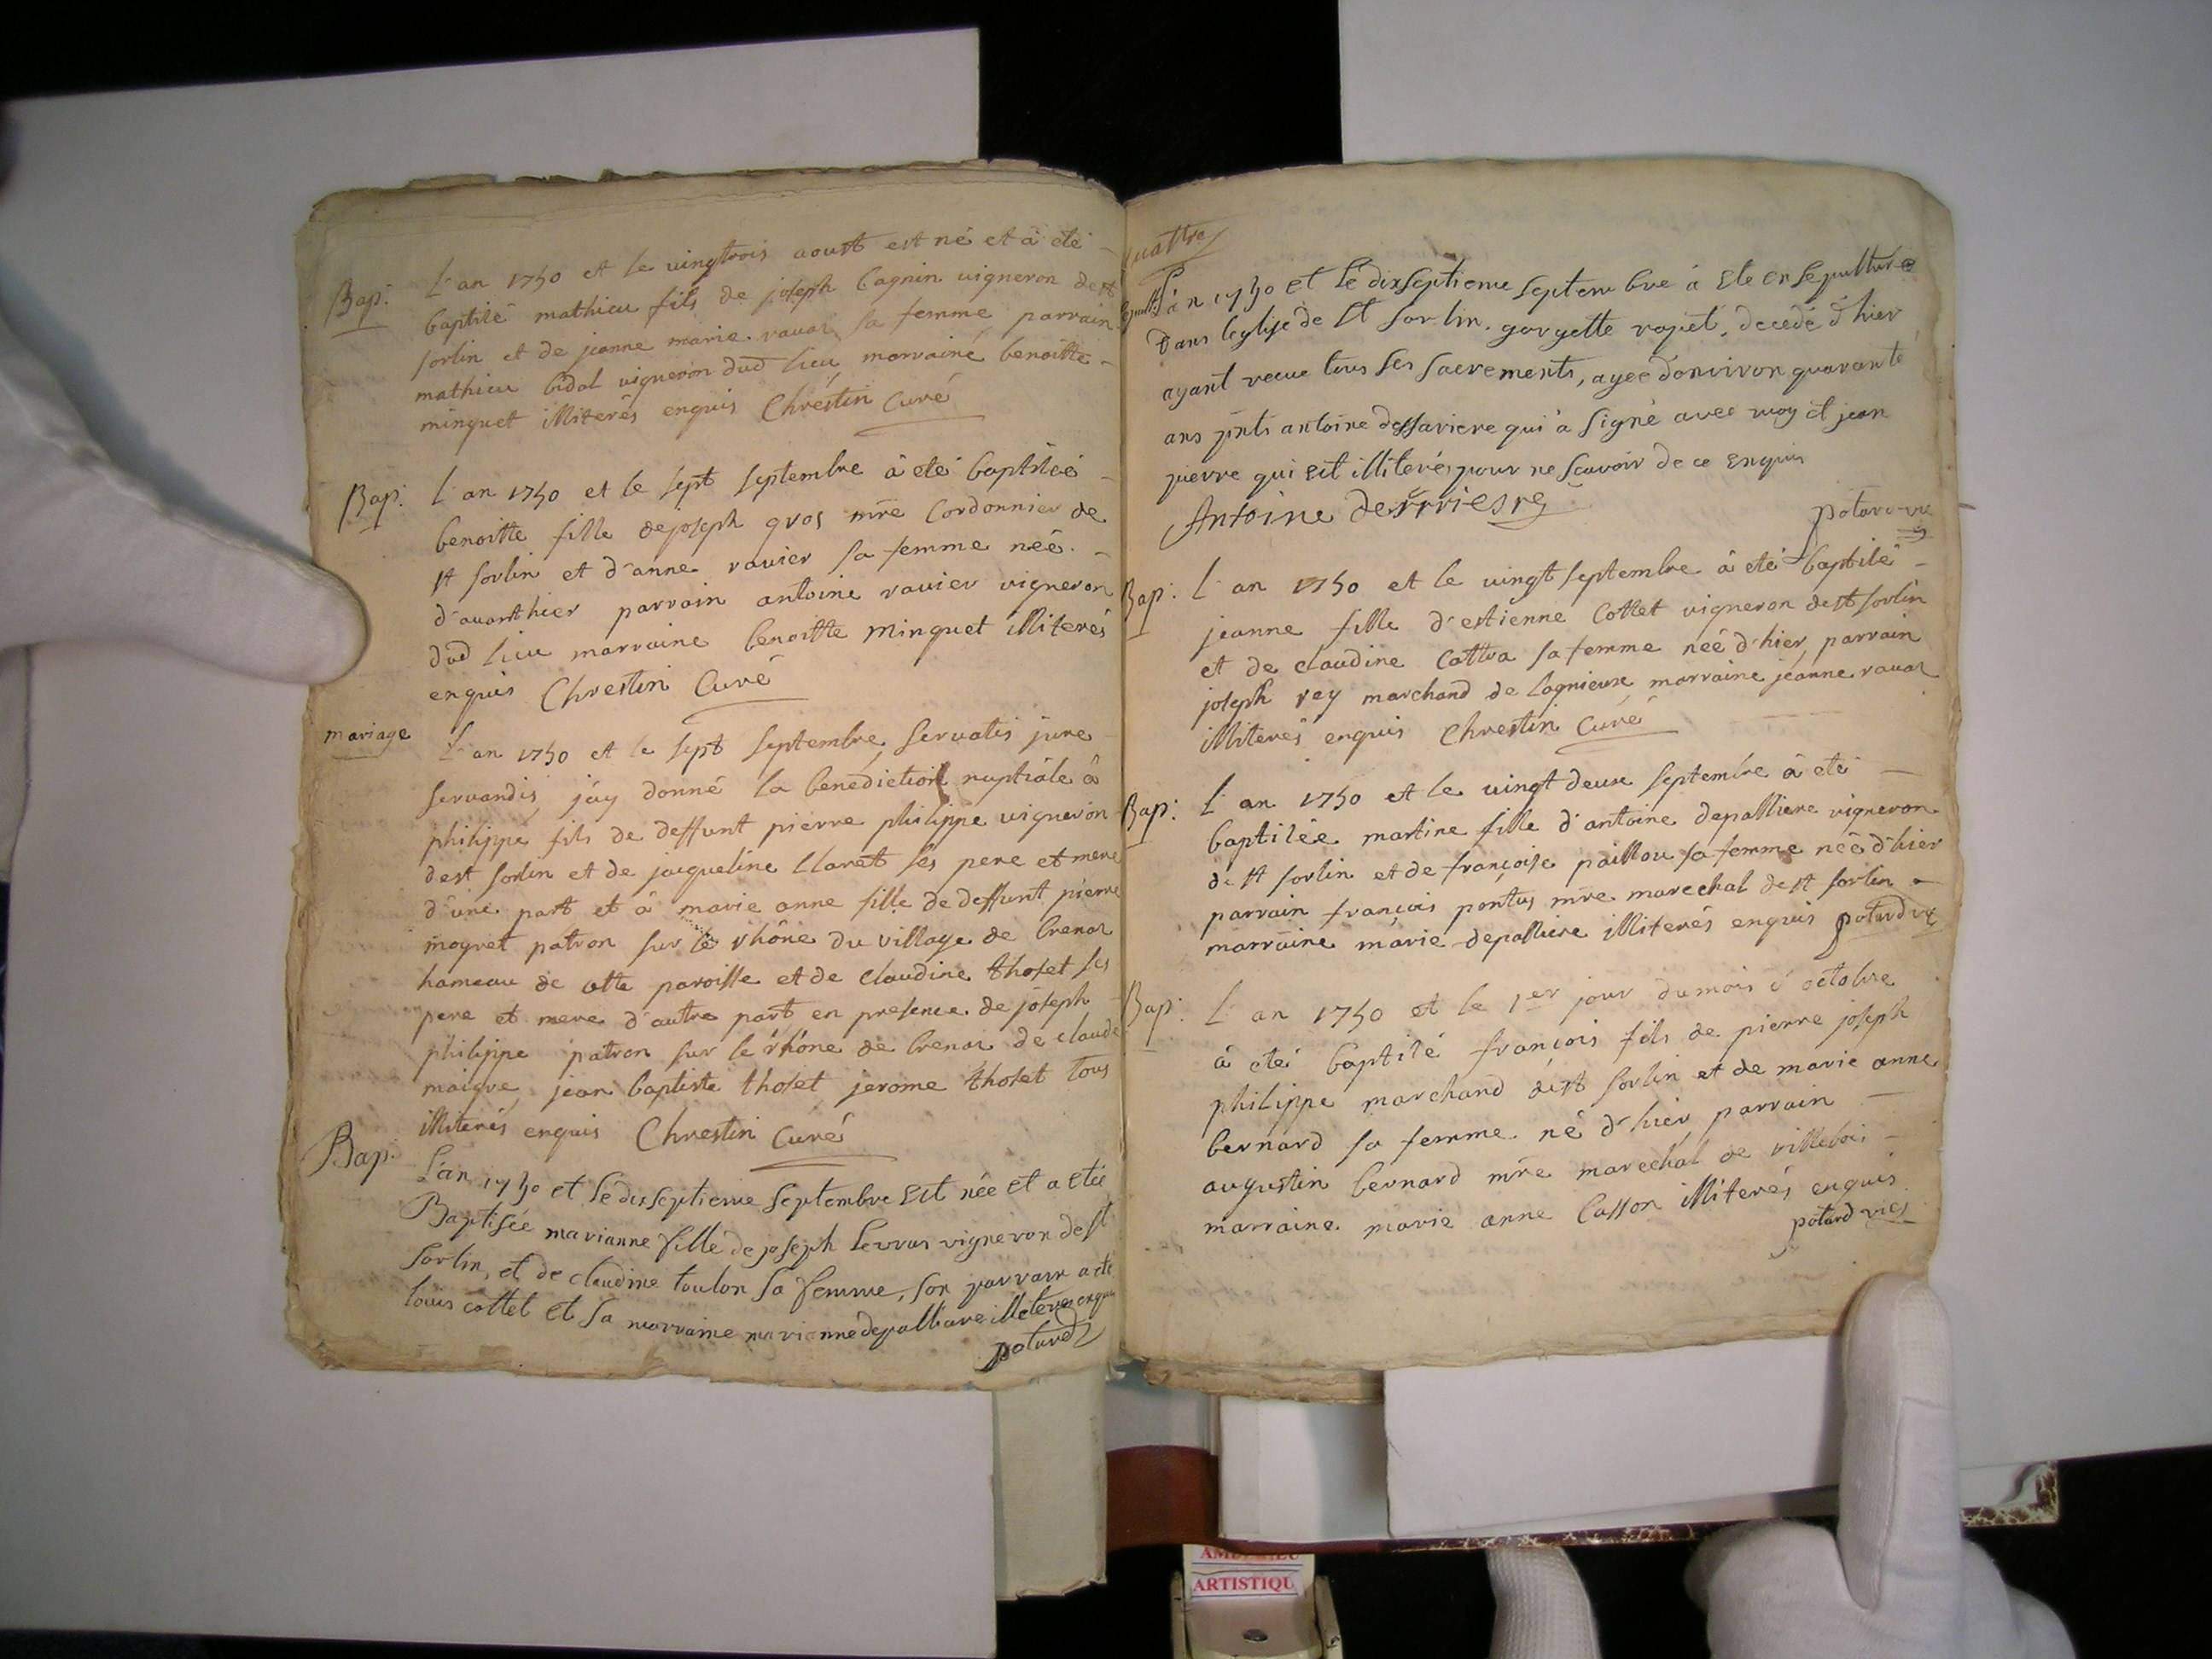 Bap: L'an 1750 et le vingtrois aoust est né et à eté
baptisé mathieu fils de joseph Cagnin vigneron de st
sorlin et de jeanne marie ravar sa femme parrain
mathieu bidal vigneron dud lieu marraine benoitte
minguet illiterés enquis Chrestin Curé
Bap: L'an 1750 et le sept septembre à eté baptisée
benoitte fille de joseph gros mre Cordonnier de
st sorlin et d'anne ravier sa femme neé
d'avanthier parrain antoine ravier vigneron
dud lieu marraine benoitte minguet illiterés
enquis Chrestin Curé
mariage L'an 1750 et le sept septembre servatis jure
servandis j'ay donné la benediction nuptiale à
philippe fils de deffunt pierre philippe vigneron
de st sorlin et de jacqueline Claret ses pere et mere
d'une part et à marie anne fille de deffunt pierre
mogret patron sur le rhône du village de brenar
hameau de cette paroisse et de claudine thoset ses
pere et mere d'autre part en presence de joseph
philippe patron sur le rhône de brenar de claude
maigre jean baptiste thoset jerome thoset tous
illiterés enquis Chrestin Curé
Bap. L'an 1750 et le disseptieme septembre Est née et a etée
Baptisée marianne fille de joseph Serras vigneron de st
sorlin, et de claudine toulon sa femme, son parrain a ete
louis cottet et sa marraine marianne depalliare illeteres enquis
potard
quattre
L'an 1750 et le dixseptieme septembre à Ete ensepulturé
dans leglise de st sorlin goryette ropet, decedé d'hier
ayant recue tous ses sacrements, ageé d'anviron quarante
ans pnts antoine dessariere qui à signé avec moy et jean
pierre qui Est illiteré, pour ne scavoir de ce Enquis
Antoine
potard vic
Bap: L'an 1750 et le vingt septembre à eté baptisé
jeanne fille d'estienne Cottet vigneron de st sorlin
et de claudine Cattra sa femme neé d'hier, parrain
joseph rey marchand de lagnieux marraine jeanne ravar
illiterés enquis Chrestin Curé
Bap: L'an 1750 et le vingt deux septembre à eté
baptisée martine fille d'antoine depalliere vigneron
de st sorlin et de françoise paillou sa femme neé d'hier
parrain françois pontus mre marechal de st sorlin
marraine marie depalliere illiterés enquis potard vic
Bap: L'an 1750 et le 1er jour du mois d'octobre
à eté baptisé françois fils de pierre joseph
philippe marchand de st sorlin et de marie anne
bernard sa femme né d'hier parrain
augustin bernard mre marechal de villebois
marraine marie anne Casson illiterés enquis
potard vic
ARTISTIQU